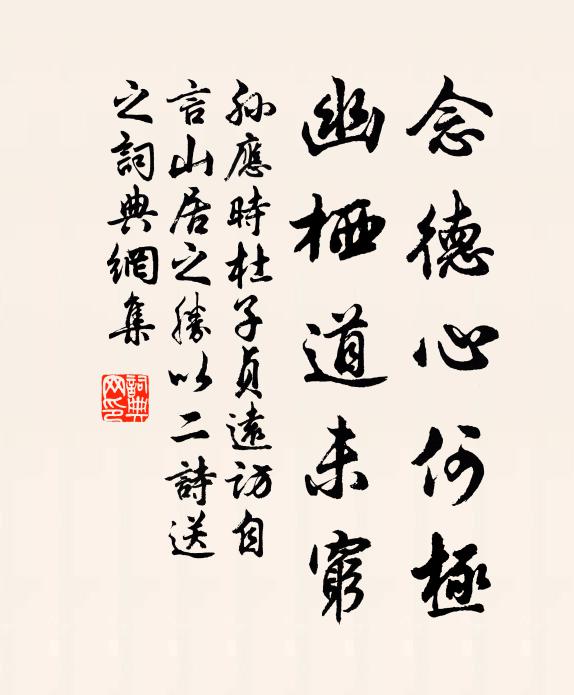 念德心何極
幽栖道未窮
孫應時杜子貞遠訪自
言山居之勝以二詩送
之詞典網集
詞典網印